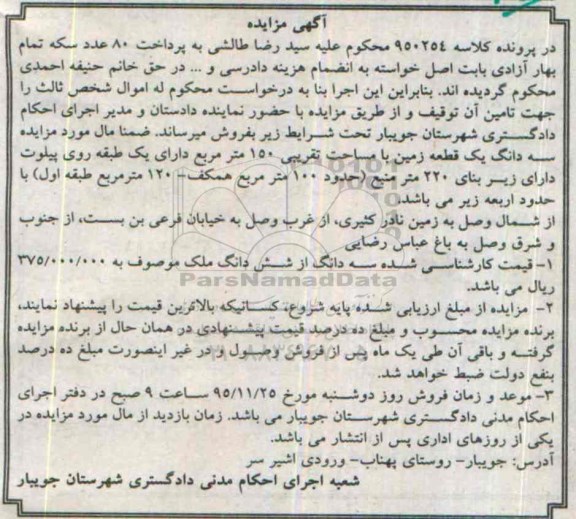 آگهی مزایده
در پرونده کلاسه ۹۵۰۲۵٤ محکوم علیه سید رضا طالشی به پرداخت ۸۰ عدد سکه تمام
بهار آزادی بابت اصل خواسته به انضمام هزینه دادرسی و ... در حق خانم حنیفه احمدی
محکوم گردیده اند. بنابراین این اجرا بنا به درخواست محکوم له اموال شخص ثالث را
جهت تامین آن توقیف و از طریق مزایده با حضور نماینده دادستان و مدیر اجرای احکام
دادگستری شهرستان جویبار تحت شرایط زیر بفروش میرساند. ضمنا مال مورد مزایده
سه دانگ یک قطعه زمین با مساحت تقریبی ۱۵۰ متر مربع دارای یک طبقه روی پیلوت
دارای زیر بنای ۲۲۰ متر منبع (حدود ۱۰۰ متر مربع همکف- ۱۲۰ مترمربع طبقه اول) با
حدود اربعه زیر می باشد.
از شمال وصل به زمین نادر کثیری، از غرب وصل به خیابان فرعی بن بست، از جنوب
و شرق وصل به باغ عباس رضایی
۱- قیمت کارشناسی شده سه دانگ از شش دانگ ملک موصوف به ۳۷۵/۰۰۰/۰۰۰
ریال می باشد.
ParsNamadData
۲- مزایده از مبلغ ارزیابی شده پایه شروع، کسانیکه بالاترین قیمت را پیشنهاد نمایند،
برنده مزایده محسوب و مبلغ ده درصد قیمت پیشنهادی در همان حال از برنده مزایده
گرفته و باقی آن طی یک ماه پس از فروش وصول و در غیر اینصورت مبلغ ده درصد
بنفع دولت ضبط خواهد شد.
۳- موعد و زمان فروش روز دوشنبه مورخ ۹۵/۱۱/۲۵ ساعت ۹ صبح در دفتر اجرای
احکام مدنی دادگستری شهرستان جویبار می باشد. زمان بازدید از مال مورد مزایده در
یکی از روزهای اداری پس از انتشار می باشد.
آدرس: جویبار- روستای پهناب- ورودی اشیر سر
شعبه اجرای احکام مدنی دادگستری شهرستان جویبار